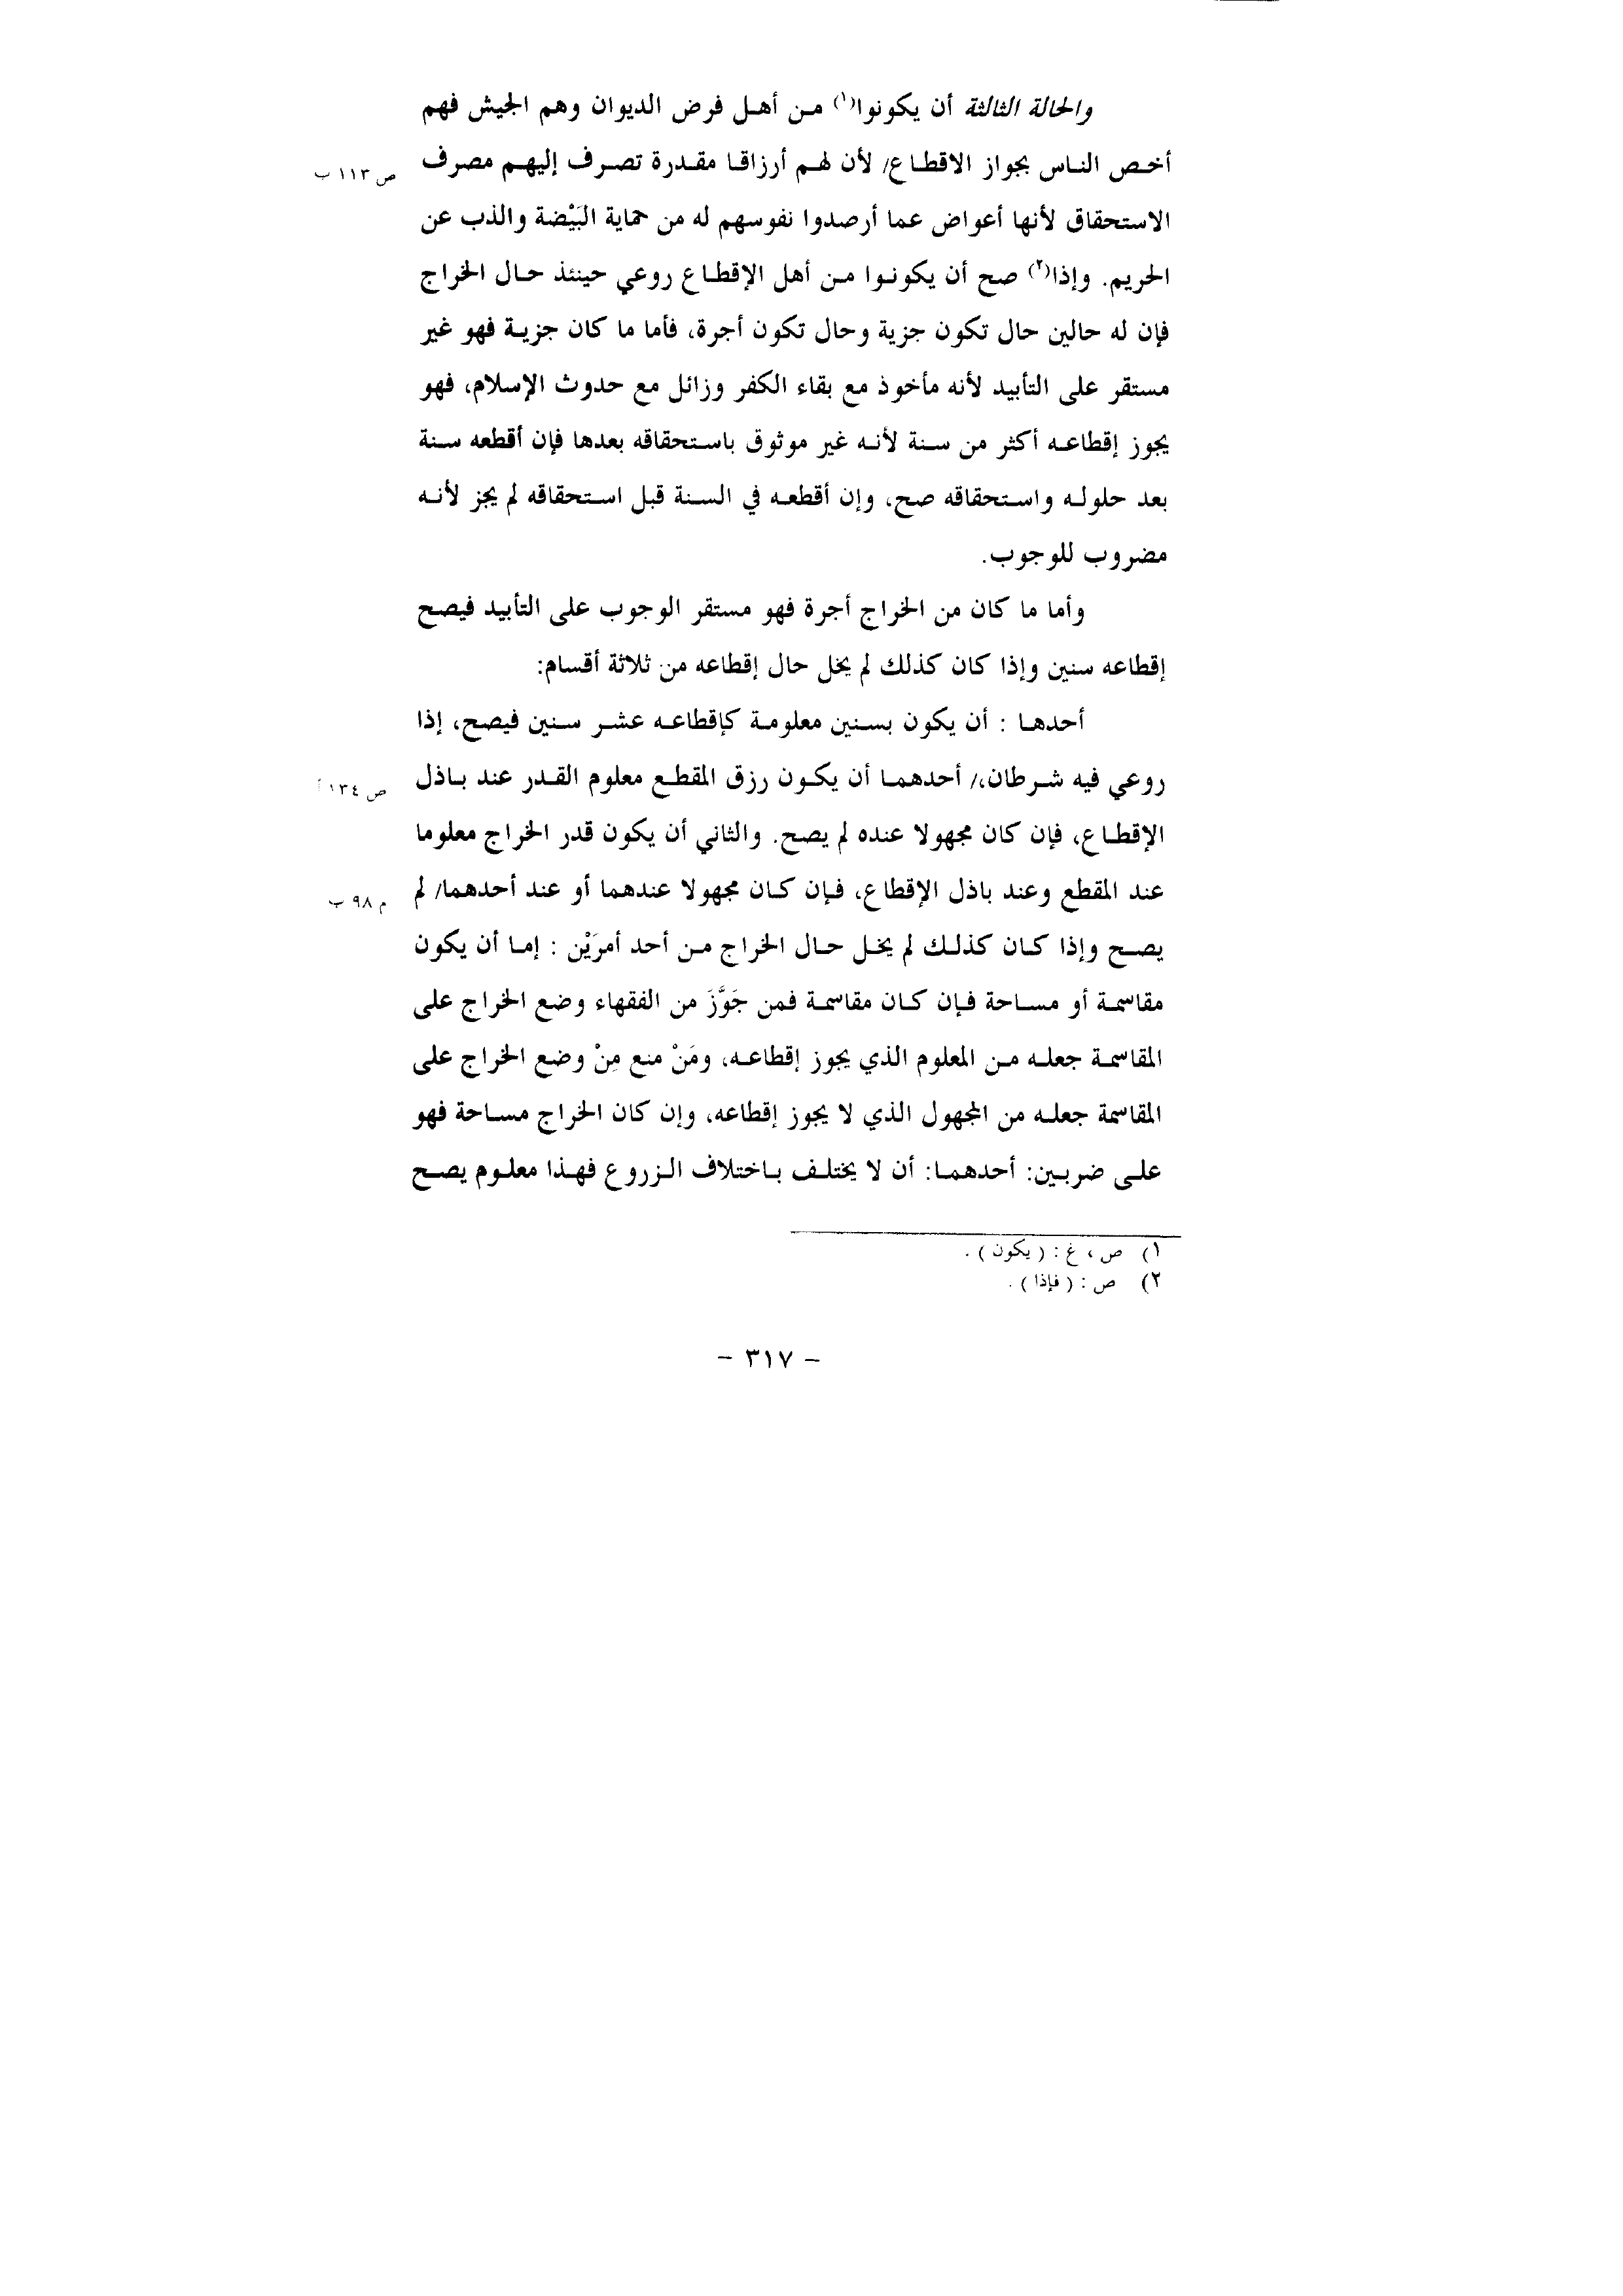 والحالة الثالثة أن يكونوا(١) من أهل فرض الديوان وهم الجيش فهم
أخص الناس بجواز الاقطاع/ لأن لهم أرزاقا مقدرة تصرف إليهم مصرف
ص ١١٣ ب
الاستحقاق لأنها أعواض عما أرصدوا نفوسهم له من حماية البَيْضة والذب عن
الحريم. وإذا(٢) صح أن يكونوا من أهل الإقطاع روعي حينئذ حال الخراج
فإن له حالين حال تكون جزية وحال تكون أجرة، فأما ما كان جزية فهو غير
مستقر على التأبيد لأنه مأخوذ مع بقاء الكفر وزائل مع حدوث الإسلام، فهو
يجوز إقطاعه أكثر من سنة لأنه غير موثوق باستحقاقه بعدها فإن أقطعه سنة
بعد حلوله واستحقاقه صح، وإن أقطعه في السنة قبل استحقاقه لم يجز لأنه
مضروب للوجوب.
وأما ما كان من الخراج أجرة فهو مستقر الوجوب على التأبيد فيصح
إقطاعه سنين وإذا كان كذلك لم يخل حال إقطاعه من ثلاثة أقسام:
أحدها : أن يكون بسنين معلومة كإقطاعه عشر سنين فيصح، إذا
روعي فيه شرطان،/ أحدهما أن يكون رزق المقطع معلوم القدر عند باذل
ص ١٣٤ أ
الإقطاع، فإن كان مجهولا عنده لم يصح. والثاني أن يكون قدر الخراج معلوما
عند المقطع وعند باذل الإقطاع، فإن كان مجهولا عندهما أو عند أحدهما/ لم
م ٩٨ ب
يصح وإذا كان كذلك لم يخل حال الخراج من أحد أمرَيْن : إما أن يكون
مقاسمة أو مساحة فإن كان مقاسمة فمن جَوَّزَ من الفقهاء وضع الخراج على
المقاسمة جعله من المعلوم الذي يجوز إقطاعه، ومَنْ منع مِنْ وضع الخراج على
المقاسمة جعله من المجهول الذي لا يجوز إقطاعه، وإن كان الخراج مساحة فهو
على ضربين: أحدهما: أن لا يختلف باختلاف الزروع فهذا معلوم يصح
١) ص ، غ : ( يكون ) .
٢) ص : ( فإذا ) .
– ٣١٧ –